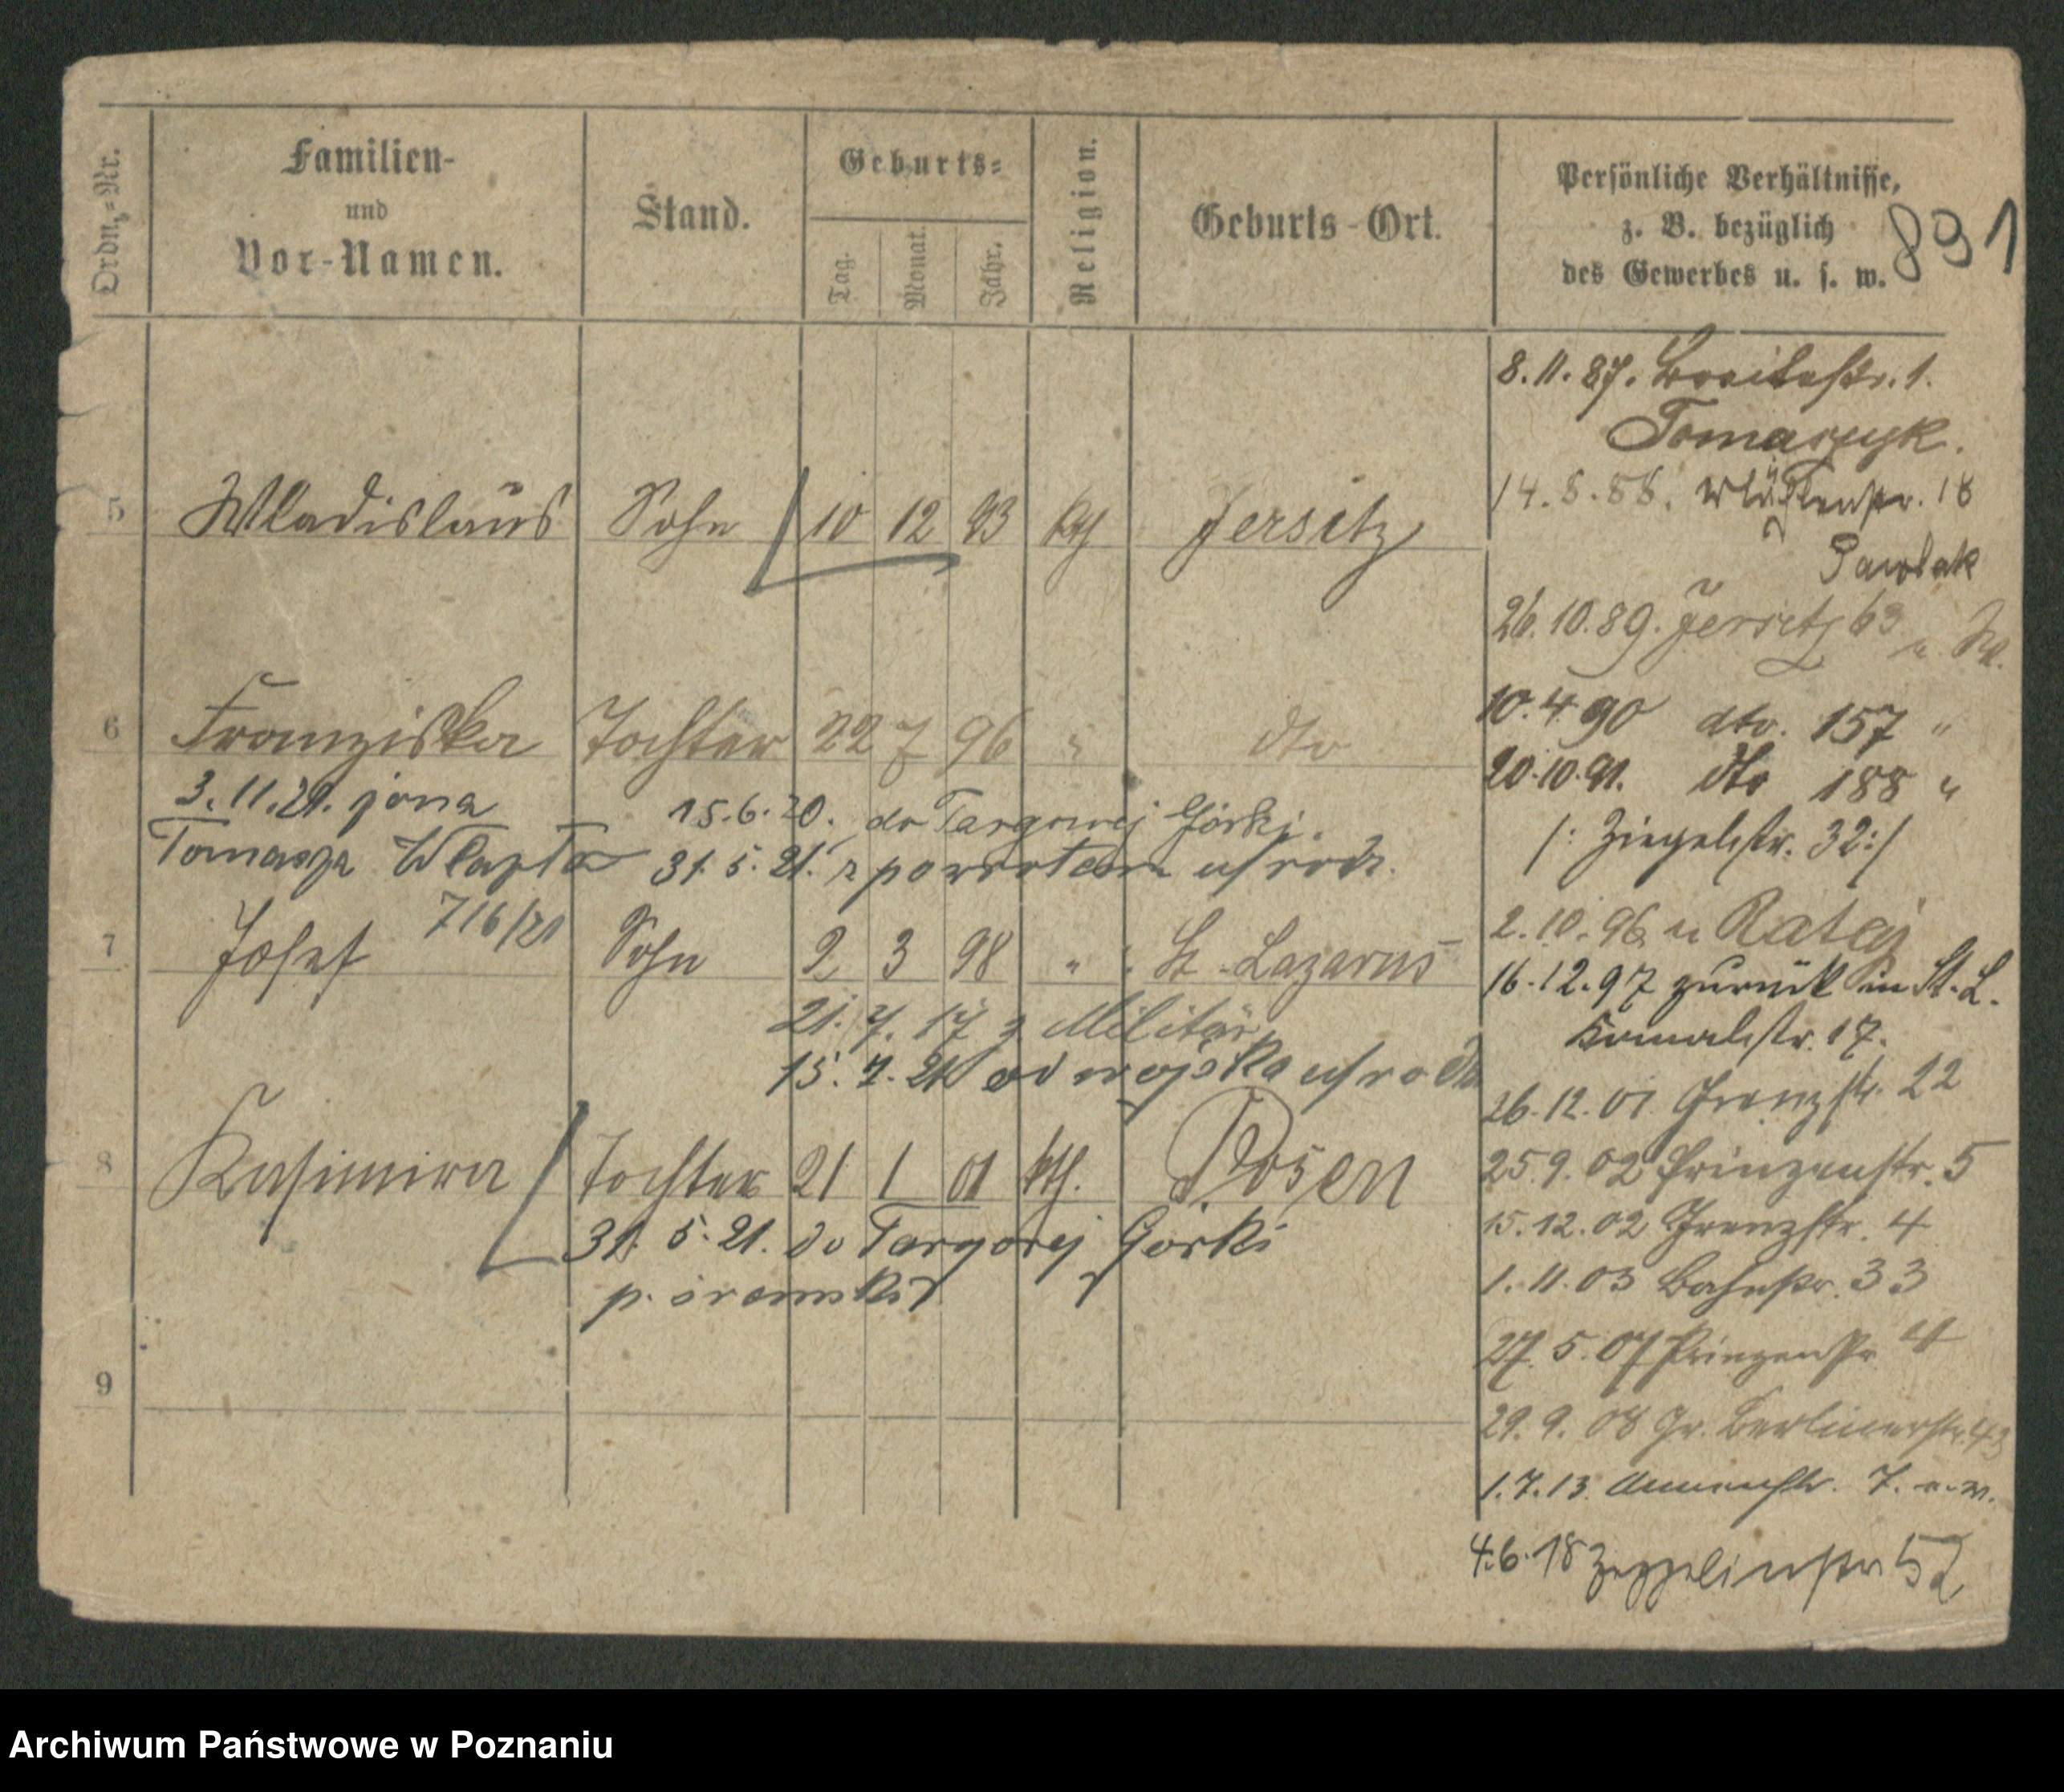 Ordn.-Nr.
Familien-
und
Vor-Namen.
Stand.
Geburts-
Tag.
Monat.
Jahr.
Religion.
Geburts-Ort.
Persönliche Verhältnisse,
z. B. bezüglich
des Gewerbes u. s. w.
891
8.11.87. str. 1.
Tomaszyk.
14.5.88. str. 18
Pawlak
26.10.89. Jersitz 63
10.4.90 dto. 157 "
20.10.91. dto 188 "
/: Ziegelstr. 32 :/
2.10.96 u Rataj
16.12.97 zurück in St. L.
str. 17.
26.12.01 Grenzstr. 22
25.9.02 Prinzenstr. 5
15.12.02 Grenzstr. 4
1.11.03 Bahnstr. 33
27.5.07 Prinzenstr. 4
29.9.08 Gr. Berlinerstr. 43
1.7.13. Annenstr. 7.
4.6.18 Zeppelinstr 52
5 Wladislaus Sohn 10 12 93 kth Jersitz
6 Franziska Tochter 22 7 96 " dto
3.11.21. żona
Tomasza Wlazła
716/21
15.6.20. do Targowej Górki.
31.5.21. z powrotem u rodz.
7 Josef Sohn 2 3 98 " St. Lazarus
21.7.17 z Militär
15.7.21 od wojska u rodz
8 Kasimira Tochter 21 1 01 kth. Posen
31.5.21. do Targowej Górki
p. śremski
9
Archiwum Państwowe w Poznaniu